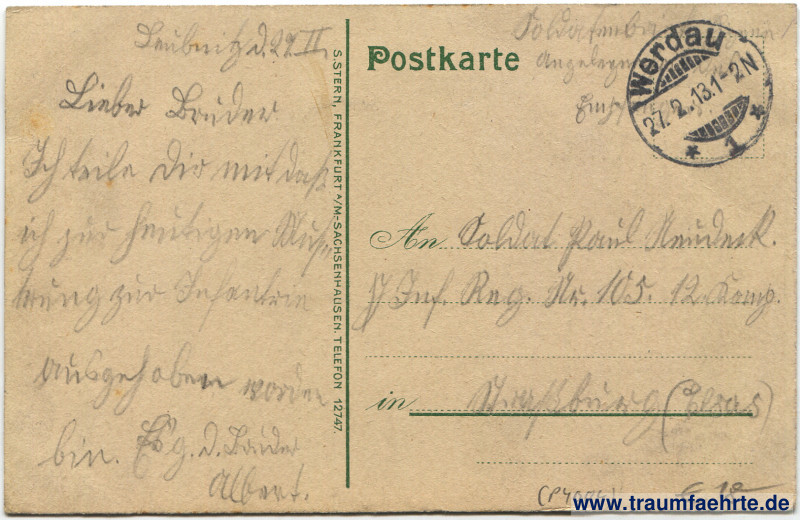 Leubnitz d. 27. II.
Lieber Bruder
Ich teile Dir mit daß
ich zur heutigen Muste
rung zur Infantrie
ausgehoben worden
bin. Es g. d. Bruder
Albert.
S. STERN, FRANKFURT A/M-SACHSENHAUSEN. TELEFON 12747.
Postkarte
Soldatenbrief
Werdau
27.2.13.1-2N
* 1 *
An Soldat Paul Neudeck.
Inf. Reg. Nr. 105. 12 Komp.
in Straßburg (Elsas)
www.traumfaehrte.de